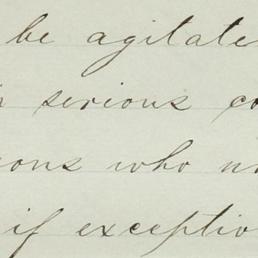 be agitate
serious co
ons who
if exceptio